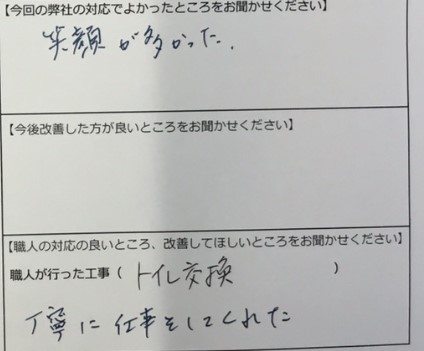 【今回の弊社の対応でよかったところをお聞かせください】
笑顔が多かった.
【今後改善した方が良いところをお聞かせください】
【職人の対応の良いところ、改善してほしいところをお聞かせください】
職人が行った工事（トイレ交換）
丁寧に仕事をしてくれた